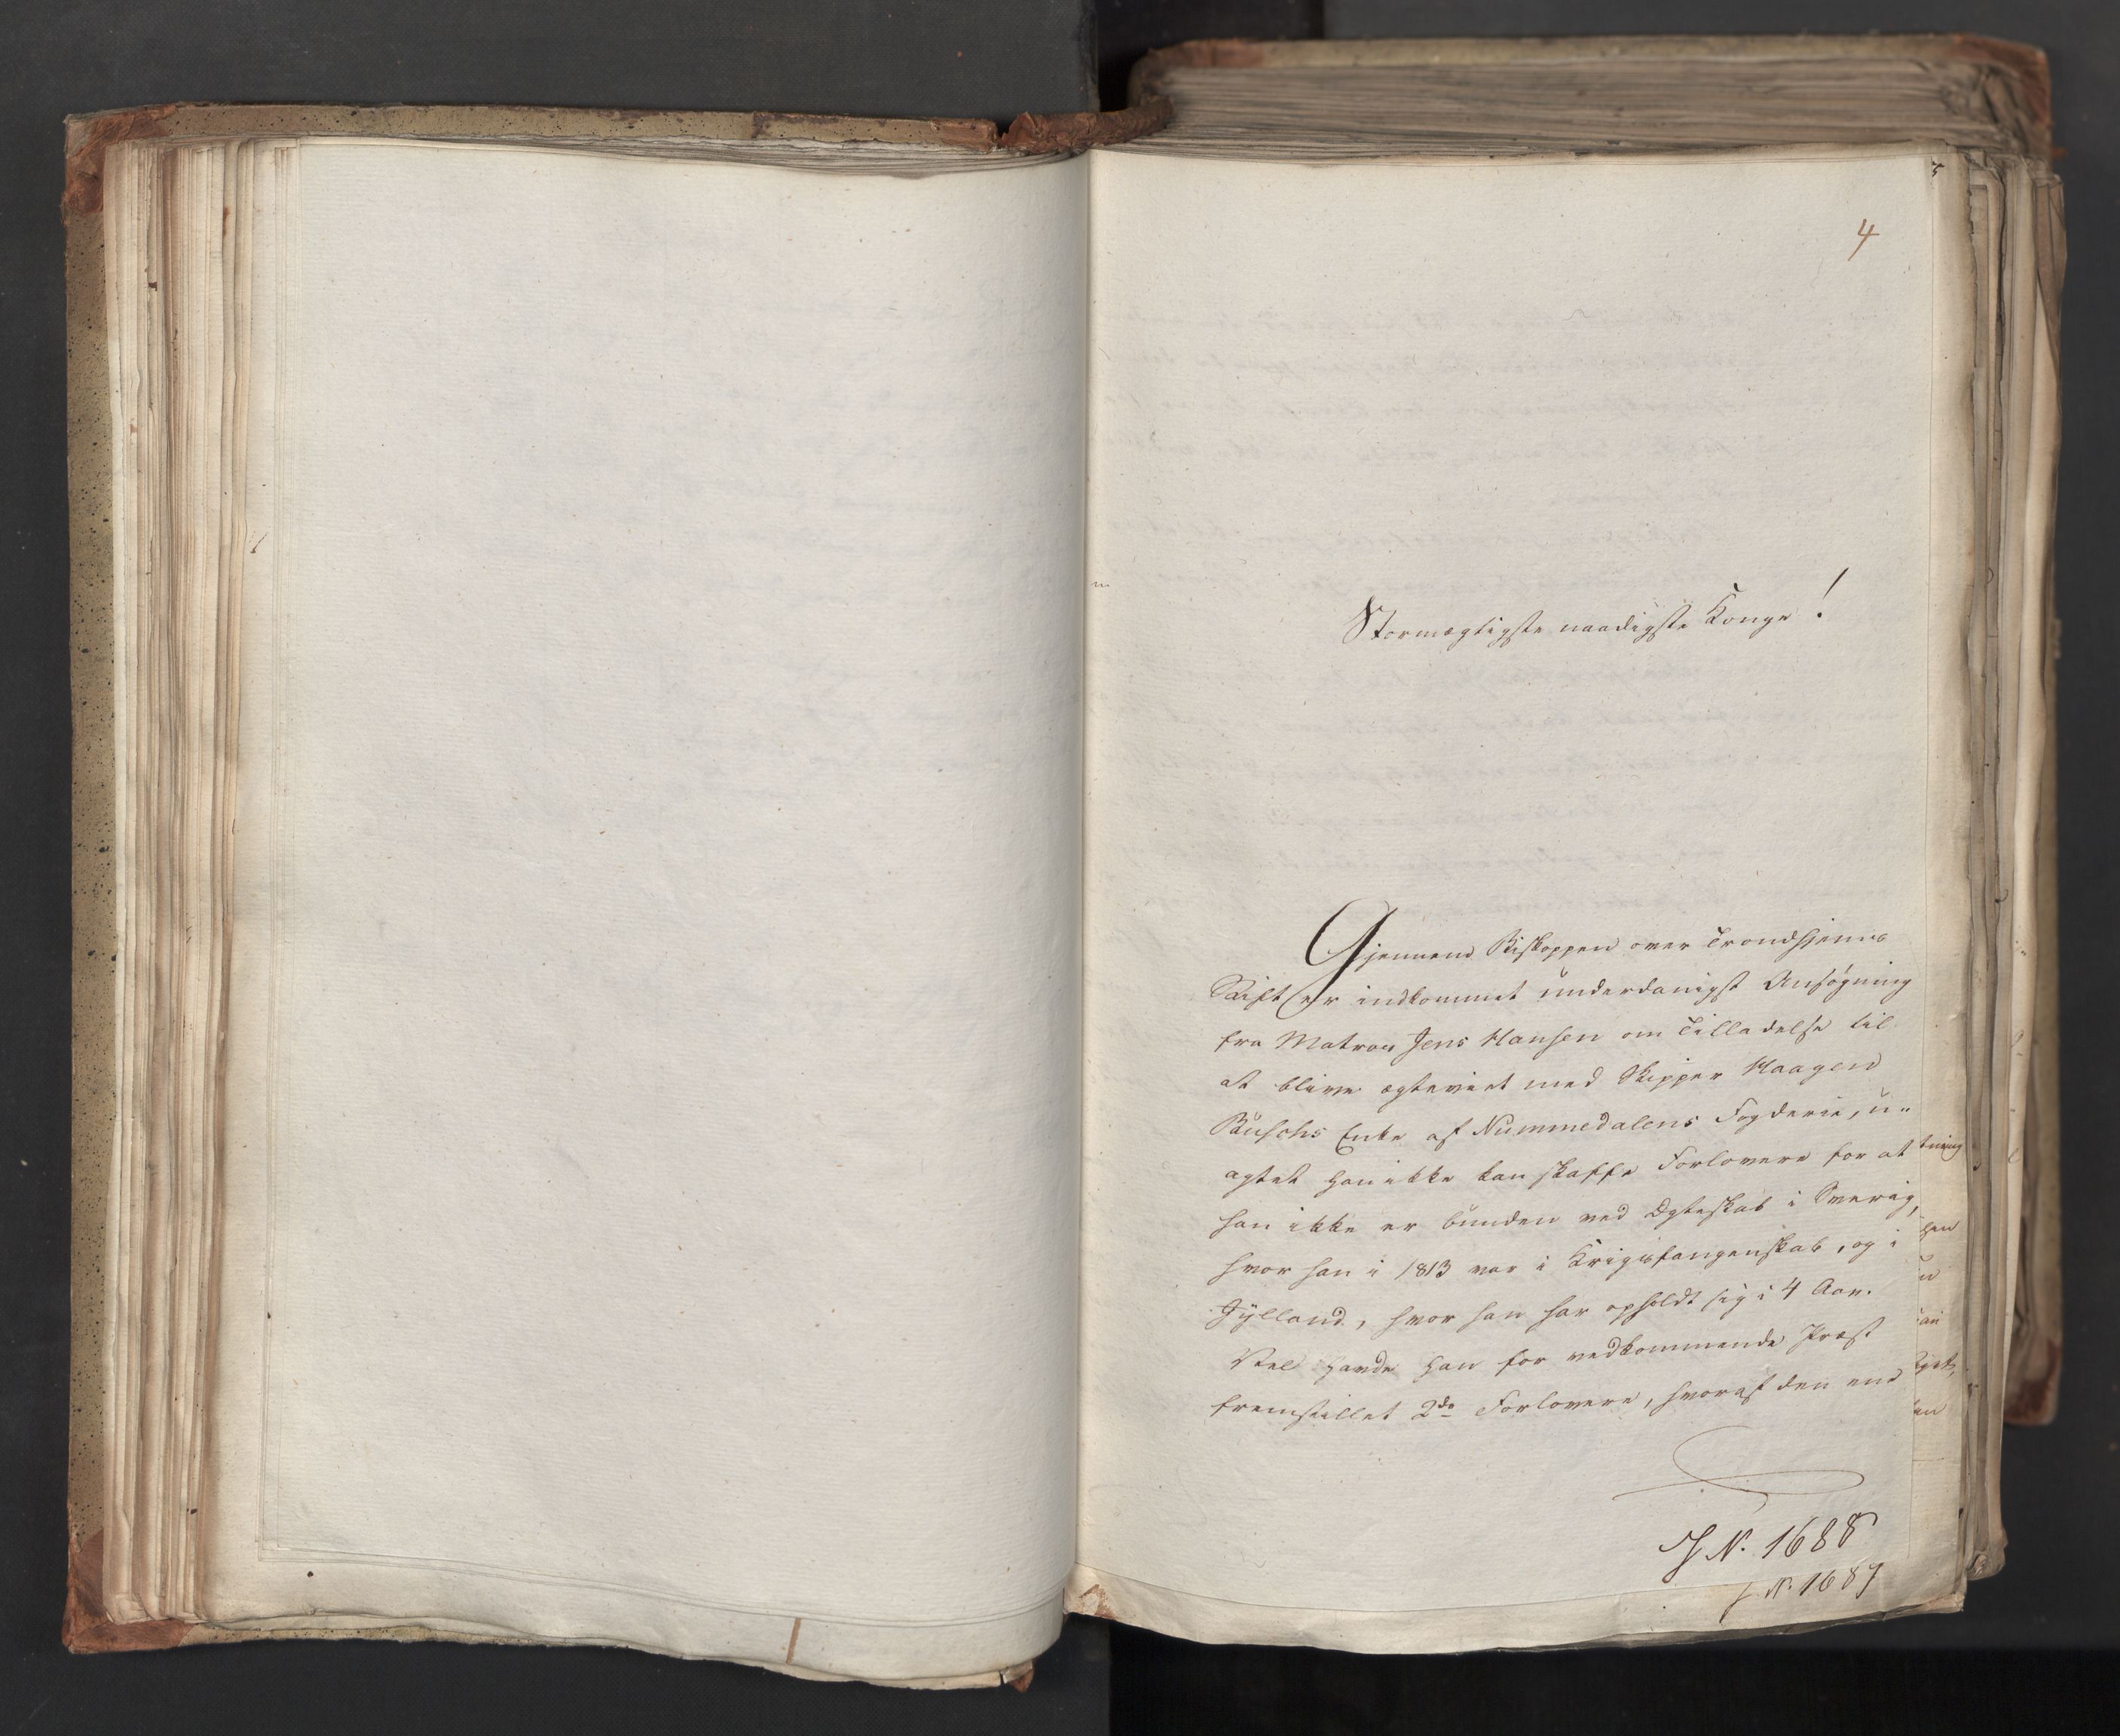 4
Stormægtigste naadigste Konge!
Gjennem Biskoppen over Trondhjems
Stift er indkommet underdanigst Ansøgning
fra Matros Jens Hansen om Tilladelse til
at blive ægteviet med Skipper Haagen
Buschs Enke af Nummedalens Fogderie, u-
agtet han ikke kan skaffe Forlovere for at
han ikke er bunden ved Ægteskab i Sverig,
hvor han i 1813 var i Krigsfangenskab, og i
Jylland, hvor han har opholdt sig i 4 Aar.
Vel havde han for vedkommende Præst
fremstillet 2de Forlovere, hvoraf den ene
J N. 1688
J N. 1689